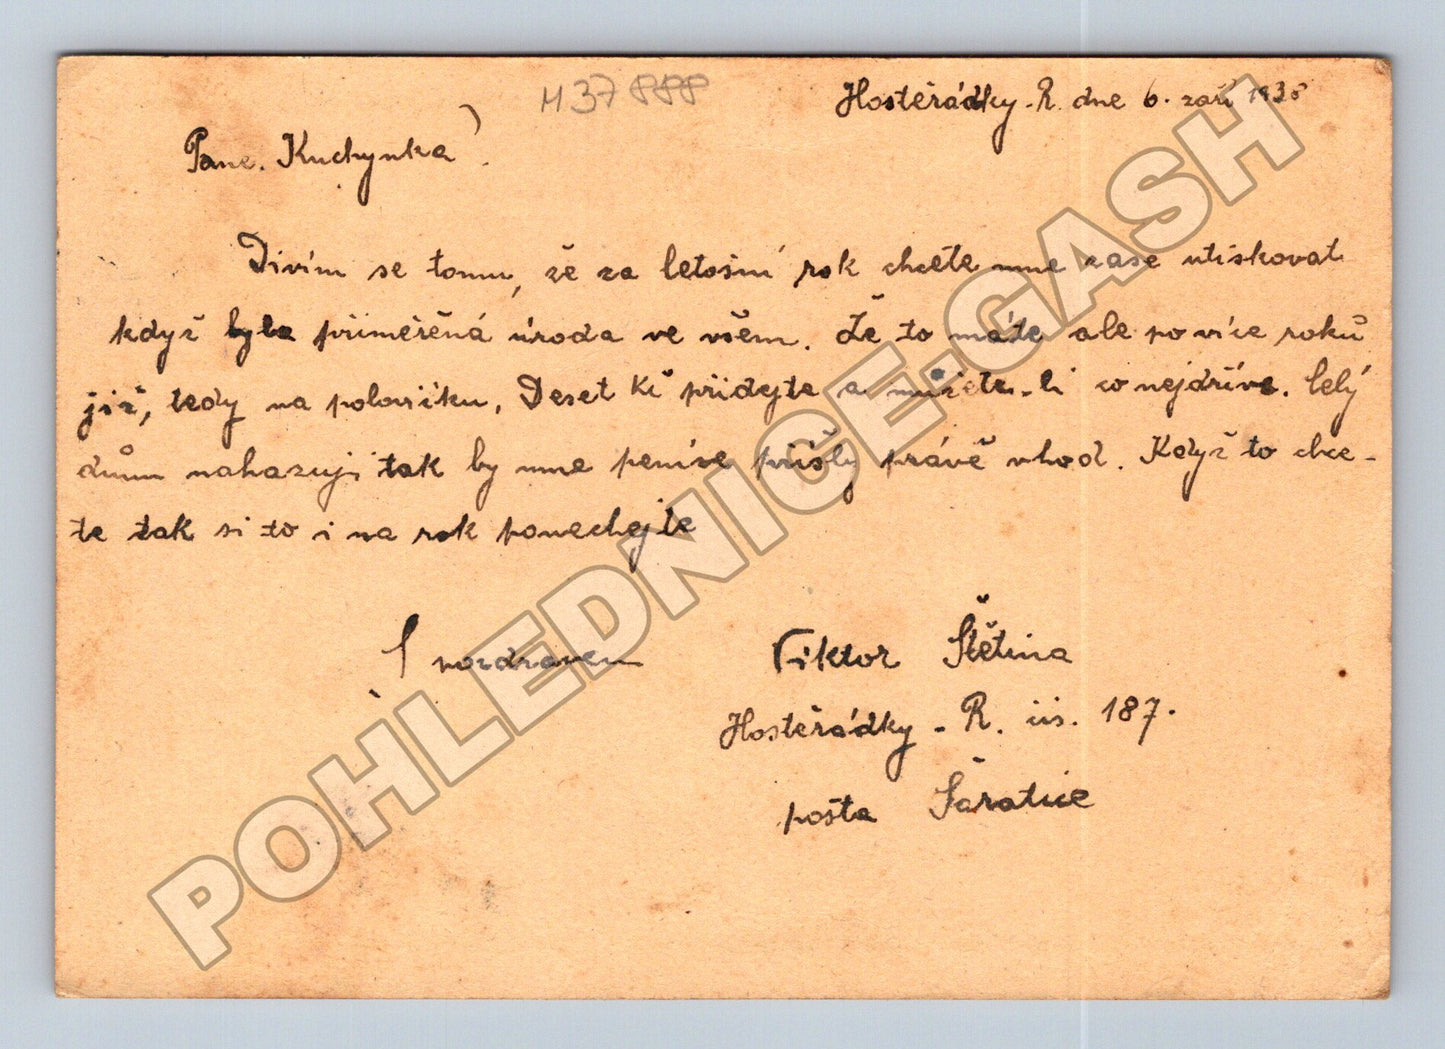 M 37888
Hostěrádky-R. dne 6. září 1938
Pane. Kuchynka
Divím se tomu, že za letošní rok chcete mne zase utiskovat
když byla přiměřěná úroda ve všem. Že to máte ale po více roků
již, tedy na polovičku. Deset Kč přidejte a můžete-li co nejdříve. Celý
dům nahazuji tak by mne peníze přišly právě vhod. Když to chce-
te tak si to i na rok ponechejte
S pozdravem
Viktor Štětina
Hostěrádky - R. čís. 187.
pošta Šaratice
POHLEDNICE-GASH